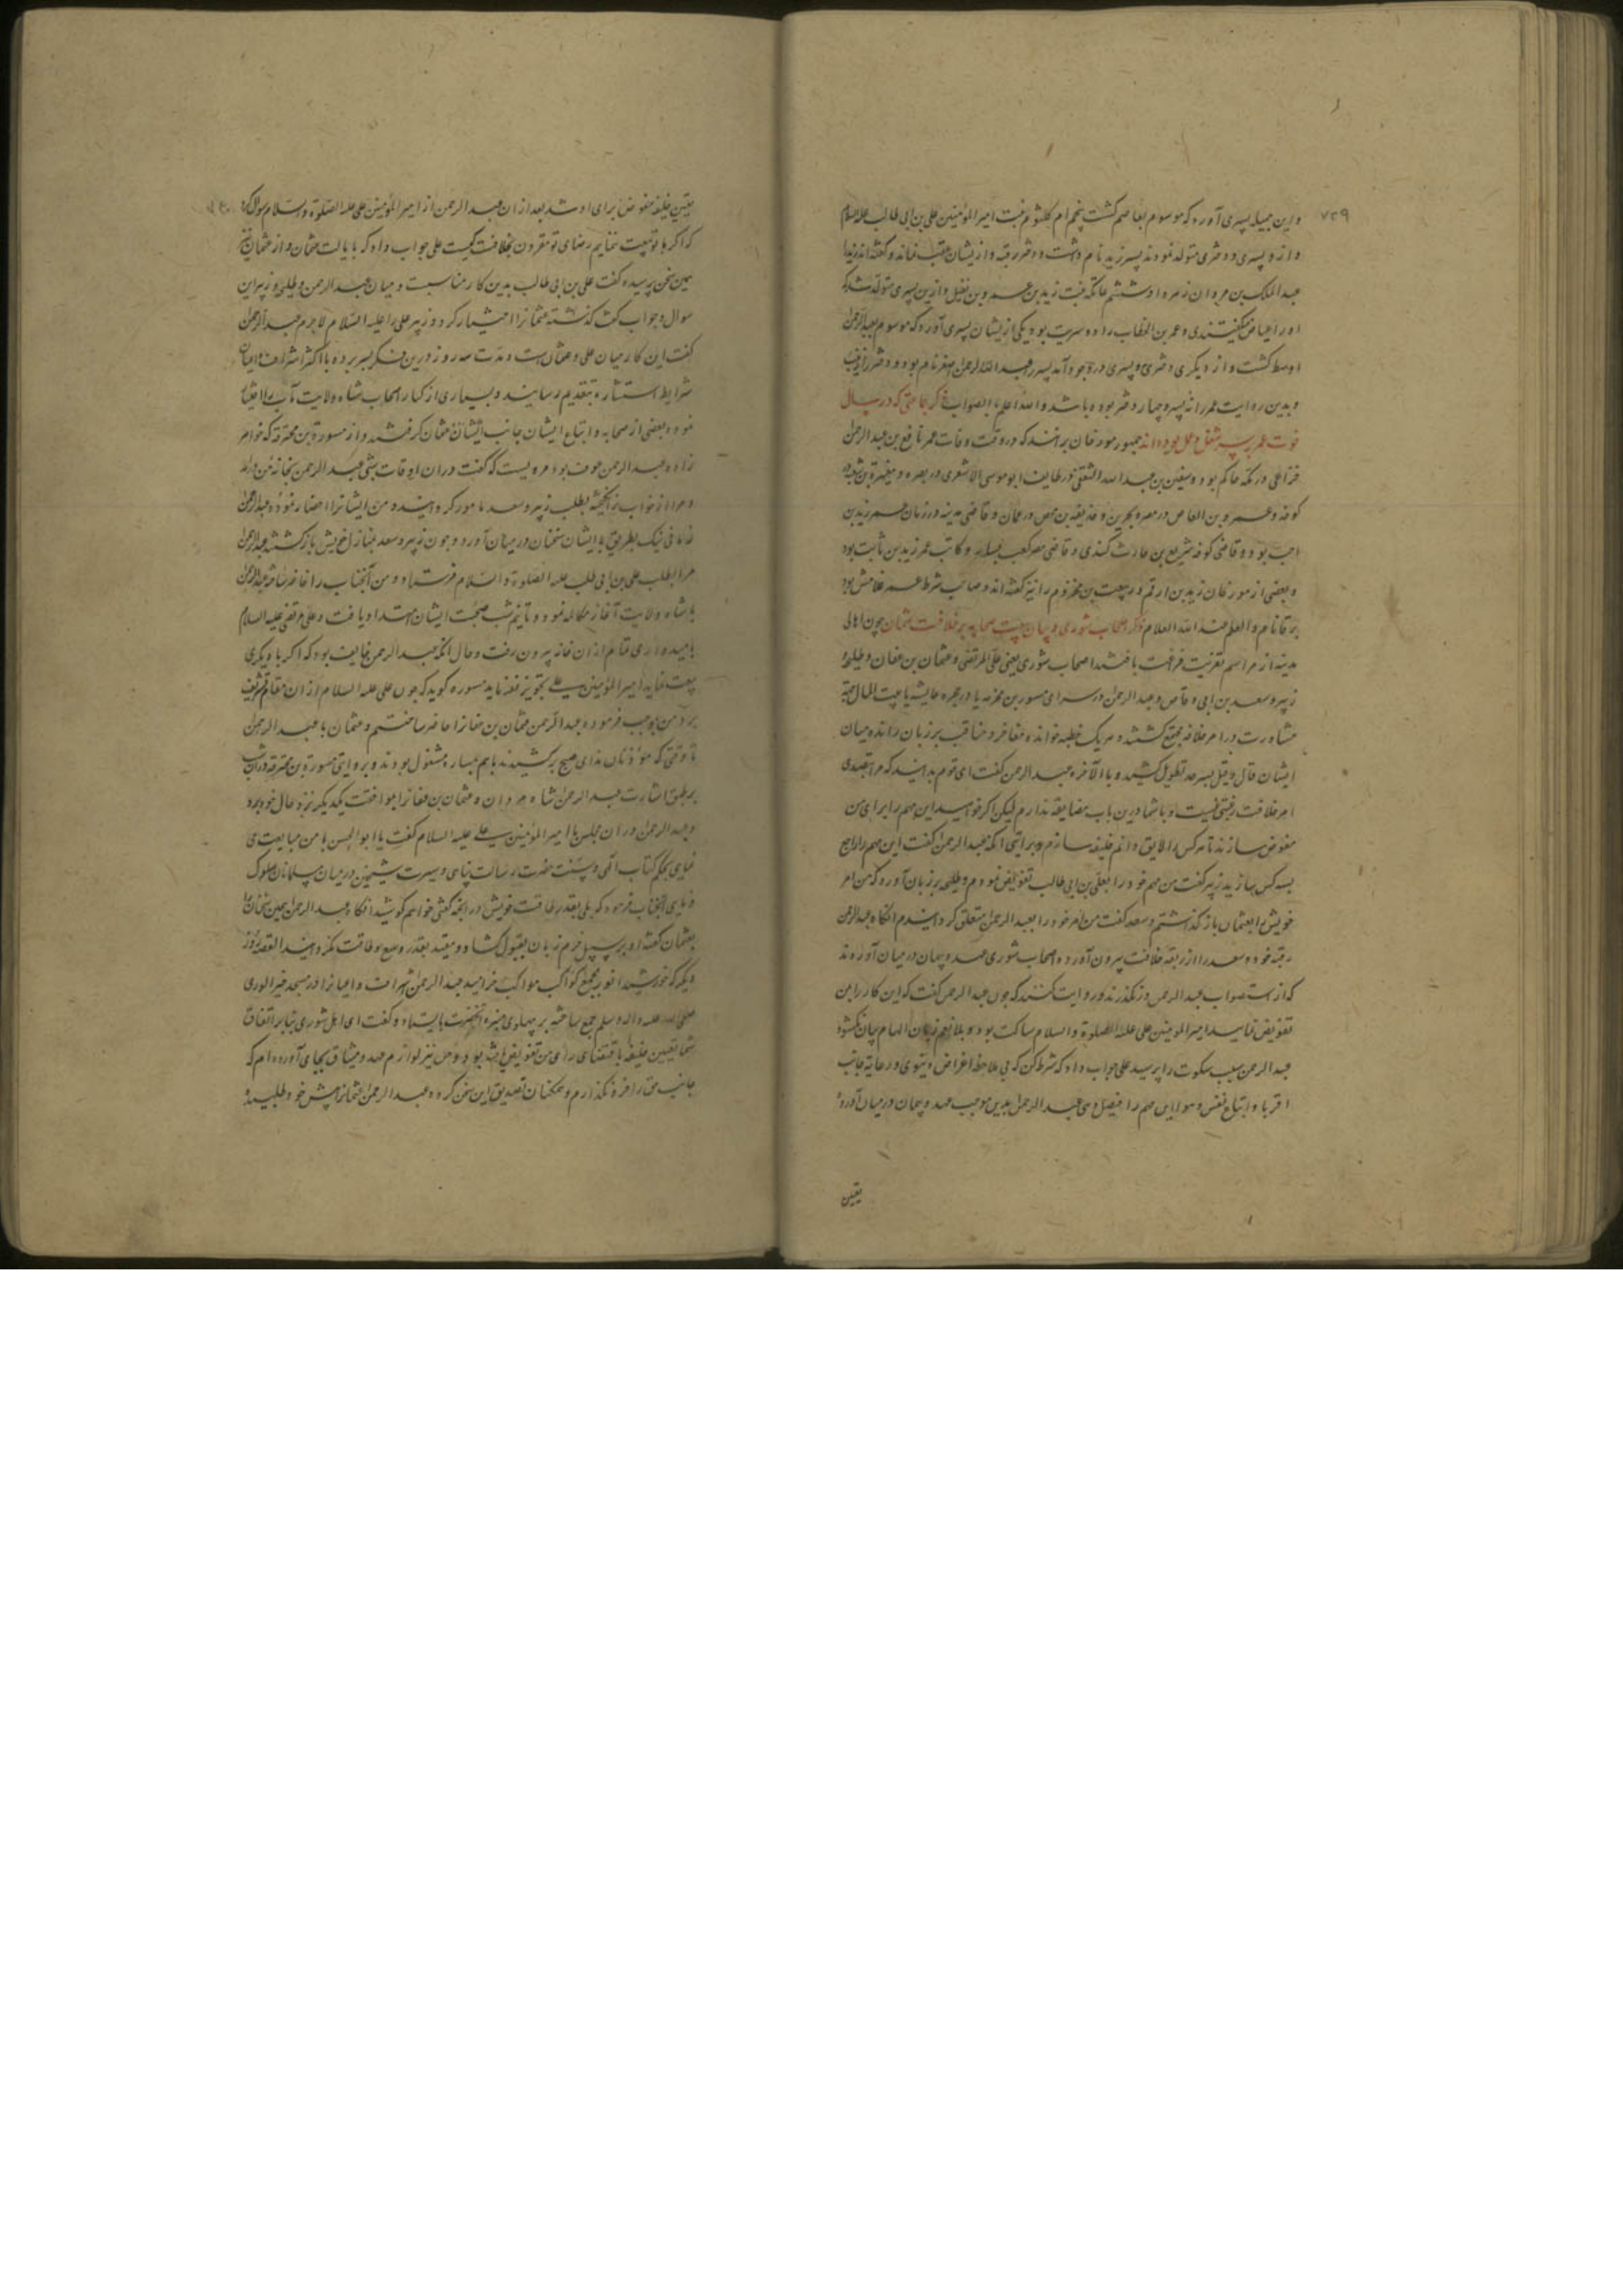 ۷۲۹
و این جمیله پسری آورد که موسوم بعاصم گشت پنجم ام کلثوم بنت امیر المؤمنین علی بن ابی طالب علیه السلام
و ازو پسری و دختری متولد نمودند پسر زید نام داشت و دختر رقیه و ازیشان عقب نماند و گفته‌اند زید را
عبد الملک بن مروان زهر داد ششم عاتکه بنت زید بن عمرو بن نفیل و ازین پسری متولد شد که
او را عیاض میگفتندی و عمر بن الخطاب را دو سریت بود یکی ازیشان پسری آورد که موسوم بعبد الرحمن
اوسط گشت و از دیگری دختری و پسری در وجود آمد پسر عبد الرحمن اصغر نام بود و دختر زینب
و بدین روایت عمر را نه پسر و چهار دختر بوده باشد و الله اعلم بالصواب ذکر جماعتی که در سال
فوت عمر بر سر شغل و عمل بوده‌اند جمهور مورخان برانند که در وقت وفات عمر نافع بن عبد الرحمن
خزاعی در مکه حاکم بود و سفین بن عبد الله الثقفی در طایف ابو موسی الاشعری در بصره و مغیرة بن شعبه در
کوفه و عمرو بن العاص در مصر و بحرین و حذیفه بن محصن در عمان و قاضی مدینه در زمان عمر زید بن
اخت بوده و قاضی کوفه شریح بن حارث کندی و قاضی مصر کعب بن یسار و کاتب عمر زید بن ثابت بود
و بعضی از مورخان زید بن ارقم و ربیعت بن مخزوم را نیز گفته‌اند و صاحب شرط عمر غلامش بود
یرقا نام و العلم عند الله العلام ذکر اصحاب شوری و بیان بیعت صحابه بر خلافت عثمان چون اهالی
مدینه از مراسم تعزیت فراغت یافتند اصحاب شوری یعنی علی المرتضی و عثمان بن عفان و طلحه و
زبیر و سعد بن ابی وقاص و عبد الرحمن در سرای مسور بن مخرمه یا در حجره عایشه یا بیت المال جهة
مشاورت در امر خلافه مجتمع گشتند و هر یک خطبه خوانده مفاخر و مناقب بر زبان رانده میان
ایشان قال و قیل بسرحد تطویل کشید و بالآخره عبد الرحمن گفت ای قوم بدانید که مرا بتصدی
امر خلافت رغبتی نیست و با شما درین باب مضایقه ندارم لیکن اگر خواهید این مهم را برای من
مفوض سازند تا هر کس را لایق دانم خلیفه سازم و بروایتی آنکه عبد الرحمن گفت این مهم را راجع
بسه کس سازید زبیر گفت من مهم خود را بعلی بن ابی طالب تفویض نمودم و طلحه بر زبان آورد که من امر
خویش را بعثمان باز گذاشتم و سعد گفت من امر خود را بعبد الرحمن متعلق گردانیدم آنگاه عبد الرحمن
رقبه خود و سعد را از ربقه خلافت بیرون آورد و اصحاب شوری عهد و پیمان در میان آوردند
که از استصواب عبد الرحمن در نگذرند و روایت کنند که چون عبد الرحمن گفت که این کار را بمن
تفویض نمایید امیر المومنین علی علیه الصلوة و السلام ساکت بود و بلا و نعم زبان الهام بیان نگشود
عبد الرحمن سبب سکوت را پرسید علی جواب داد که شرط کن که بی ملاحظه اغراض دنیوی و رعایه جانب
اقربا و اتباع نفس و هوا این مهم را فیصل دهی عبد الرحمن بدین موجب عهد و پیمان در میان آورده
تعیین
تعیین خلیفه مفوض برای او شد بعد از آن عبد الرحمن از امیر المؤمنین علی علیه الصلوة و السلام سوال کرد
که اگر با تو بیعت ننمایم رضای تو مقرون بخلافت کیست علی جواب داد که بایالت عثمان و از عثمان نیز
همین سخن پرسیده گفت علی بن ابی طالب بدین کار مناسبست و میان عبد الرحمن و طلحه و زبیر این
سوال و جواب گذشته عثمانرا اختیار کرد و زبیر علی را علیه السلام لاجرم عبد الرحمن
گفت این کار میان علی و عثمان است و مدت سه روز درین فکر بسر برده با اکثر اشراف و اعیان
شرایط استشاره بتقدیم رسانید و بسیاری از کبار اصحاب شاه ولایت مآب را اختیار
نموده بعضی از صحابه و اتباع ایشان جانب عثمان گرفتند و از مسور بن مخرمه که خواهر
زاده عبد الرحمن عوف بود مرویست که گفت در آن اوقات شبی عبد الرحمن بخانه من درآمد
و مرا از خواب برانگیخته بطلب زبیر و سعد مامور گردانید و من ایشانرا احضار نموده عبد الرحمن
زمانی نیک بطریق با ایشان سخنان در میان آورد و چون زبیر و سعد بمنازل خویش بازگشتند عبد الرحمن
مرا بطلب علی بن ابی طالب علیه الصلوة و السلام فرستاد و من آنجناب را حاضر ساخته عبد الرحمن
با شاه ولایت آغاز مکالمه نمود و تا نیم شب صحبت ایشان امتداد یافت و علی مرتضی علیه السلام
بامیدواری تمام از آن خانه بیرون رفت و حال آنکه عبد الرحمن خایف بود که اگر با دیگری
بیعت نماید امیر المؤمنین علی تجویز نفرماید مسور گوید که چون علی علیه السلام از آن مقام تشریف
برد من بموجب فرموده عبد الرحمن عثمان بن عفانرا حاضر ساختم و عثمان با عبد الرحمن
تا وقتی که مؤذنان ندای صبح برکشیدند با هم بمساره مشغول بودند و بروایتی مسور بن مخرمه در آن شب
بر طبق اشارت عبد الرحمن شاه مردان و عثمان بن عفانرا بموافقت یکدیگر نزد خال خود برد
و عبد الرحمن در آن مجلس با امیر المؤمنین علی علیه السلام گفت یا ابو الحسن با من مبایعت می
نمایی بحکم کتاب الهی و سنت حضرت رسالت پناهی و سیرت شیخین در میان مسلمانان سلوک
نمایی آنجناب فرمود که بلی بقدر طاقت خویش در آنچه گفتی خواهم کوشید آنگاه عبد الرحمن همین سخنان را
بعثمان گفته او بر سبیل جزم زبان بقبول گشاد و مقید بقدر وسع و طاقت نگردانید القصه روز
دیگر که خورشید انور بمجمع کواکب مواکب خرامید عبد الرحمن اشراف و اعیانرا در مسجد خیر الوری
صلی الله علیه و اله و سلم جمع ساخته بر پهلوی منبر آنحضرت بایستاد و گفت ای اهل شوری بنابر اتفاق
شما تعیین خلیفه باقتضای رای من تفویض یافته بود و من نیز لوازم عهد و میثاق بجای آورده‌ام که
جانب حق را فرو نگذارم و همگنان تصدیق این سخن کرده عبد الرحمن عثمانرا پیش خود طلبیده